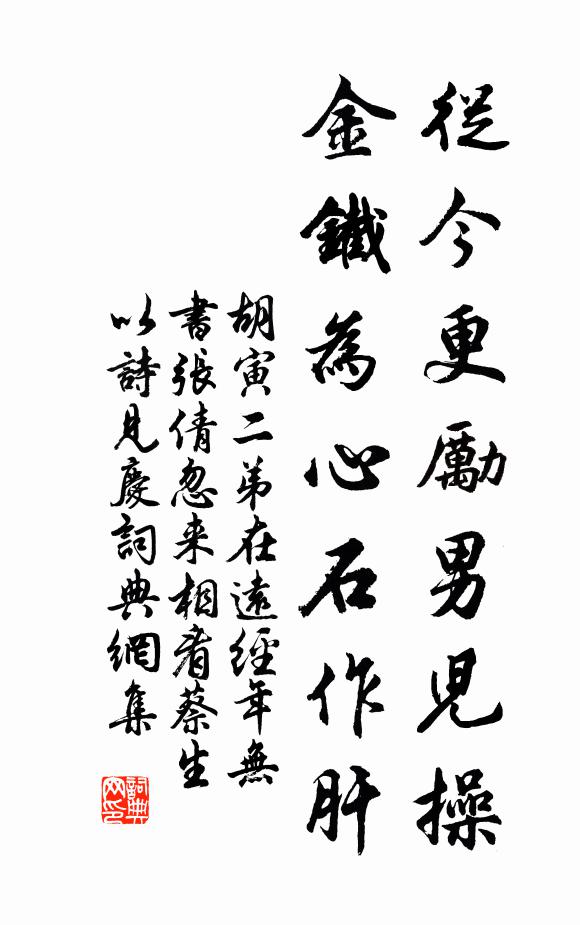 從今更勵男兒操
金鐵為心石作肝
胡寅二弟在遠經年無
書張倩忽来相看蔡生
以詩見慶詞典網集
詞典
网印